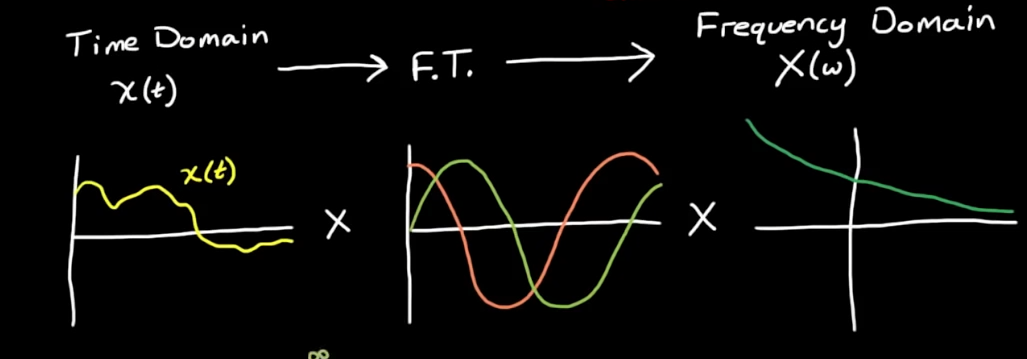 Time Domain
x(t)
F.T.
Frequency Domain
X(ω)
x(t)
X
X
∞